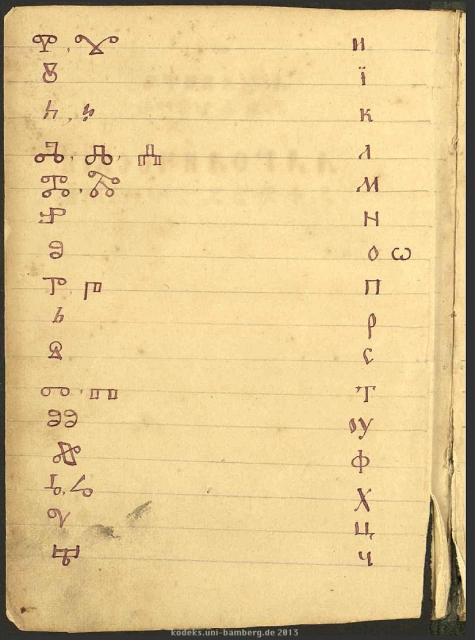 ⰹ, ⰺ и
ⰻ ї
ⰽ, ⰽ к
ⰾ, ⰾ, ⰾ л
ⰿ, ⰿ м
ⱀ н
ⱁ о ѡ
ⱂ, ⱂ п
ⱃ р
ⱄ с
ⱅ, ⱅ т
ⱁⱁ оу
ⱇ ф
ⱈ, ⱈ х
ⱌ ц
ⱍ ч
kodeks.uni-bamberg.de 2013